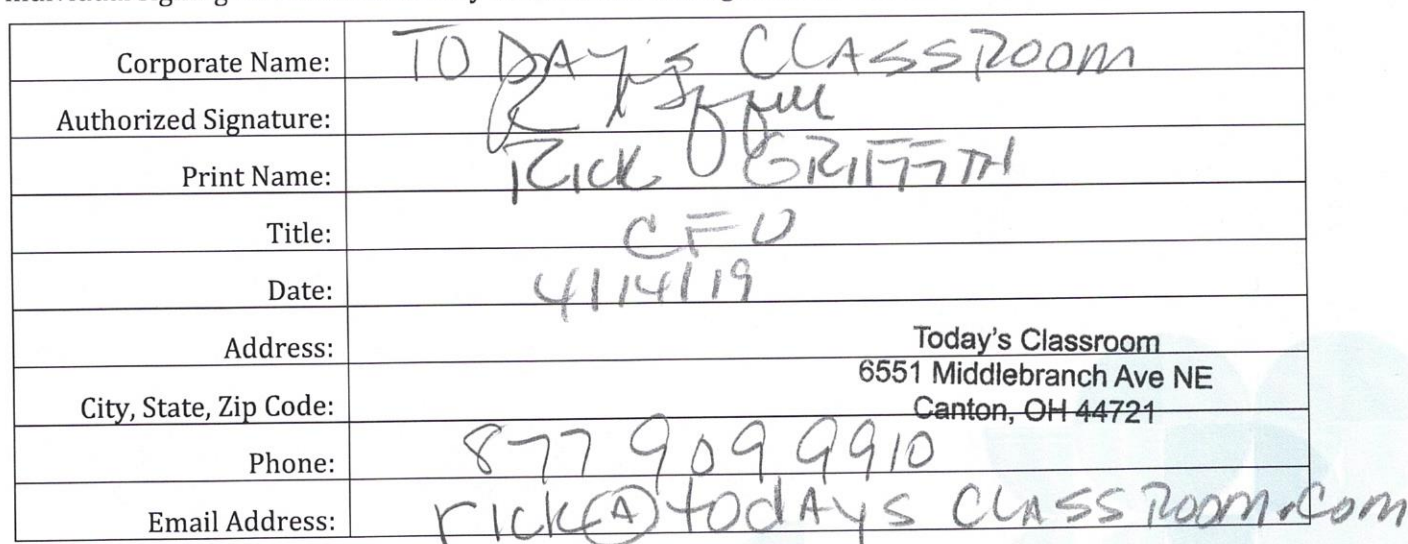 Corporate Name: TODAY's CLASSROOM
Authorized Signature:
Print Name: RICK GRIFFITH
Title: CFO
Date: 4/14/19
Address: Today's Classroom
6551 Middlebranch Ave NE
City, State, Zip Code: Canton, OH 44721
Phone: 877 909 9910
Email Address: rick@todAys CLASSROOM.com